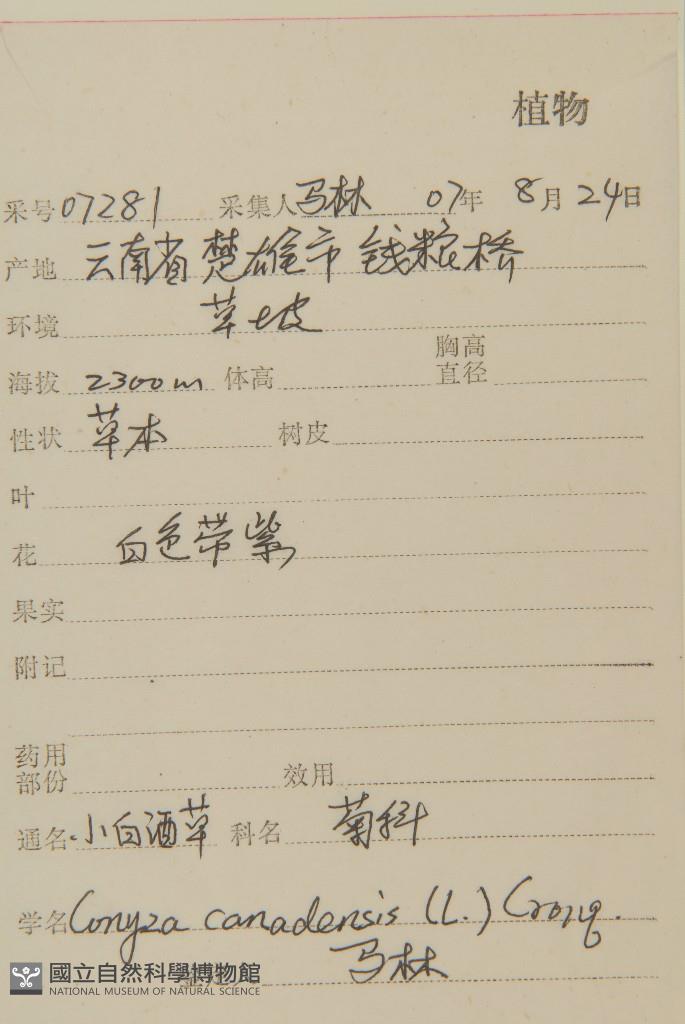 植物
采号 07281 采集人 马林 07年 8月 24日
产地 云南省楚雄市钱粮桥
环境 草坡
海拔 2300m 体高 胸高直径
性状 草本 树皮
叶
花 白色带紫
果实
附记
药用部份 效用
通名 小白酒草 科名 菊科
学名 Conyza canadensis (L.) Cronq.
马林
國立自然科學博物館
NATIONAL MUSEUM OF NATURAL SCIENCE